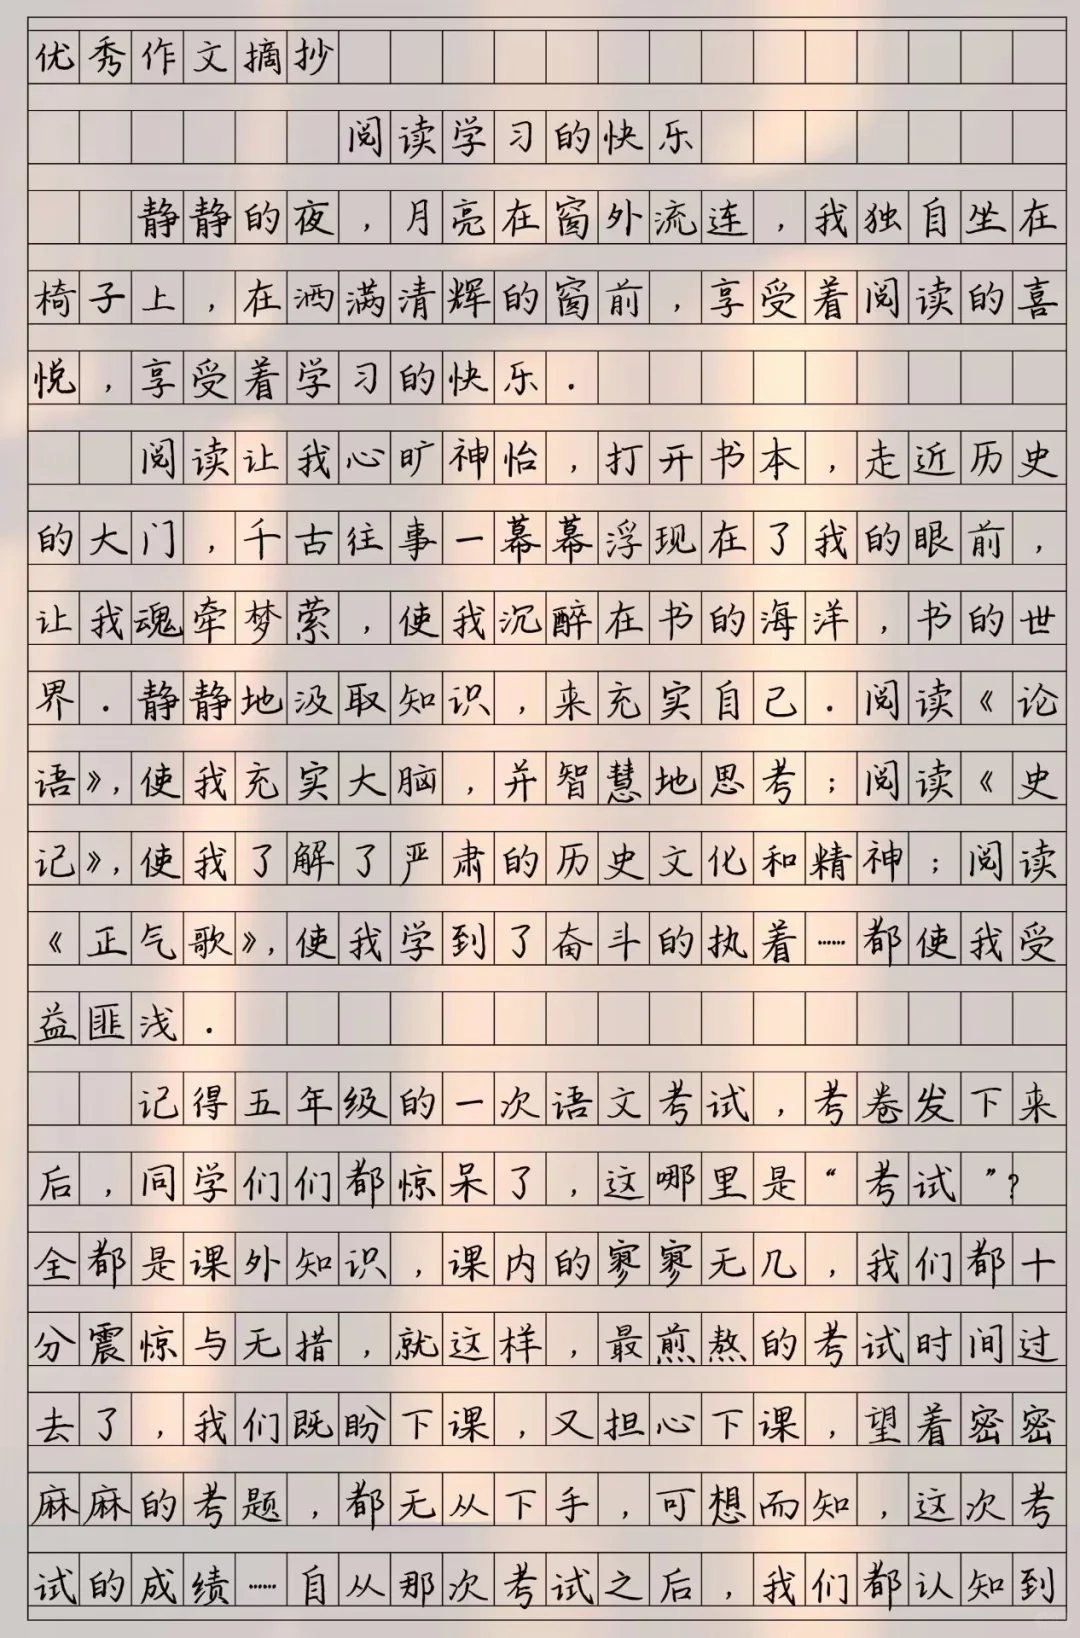 优秀作文摘抄
阅读学习的快乐
静静的夜，月亮在窗外流连，我独自坐在
椅子上，在洒满清辉的窗前，享受着阅读的喜
悦，享受着学习的快乐．
阅读让我心旷神怡，打开书本，走近历史
的大门，千古往事一幕幕浮现在了我的眼前，
让我魂牵梦萦，使我沉醉在书的海洋，书的世
界．静静地汲取知识，来充实自己．阅读《论
语》，使我充实大脑，并智慧地思考；阅读《史
记》，使我了解了严肃的历史文化和精神；阅读
《正气歌》，使我学到了奋斗的执着……都使我受
益匪浅．
记得五年级的一次语文考试，考卷发下来
后，同学们们都惊呆了，这哪里是“考试”？
全都是课外知识，课内的寥寥无几，我们都十
分震惊与无措，就这样，最煎熬的考试时间过
去了，我们既盼下课，又担心下课，望着密密
麻麻的考题，都无从下手，可想而知，这次考
试的成绩……自从那次考试之后，我们都认知到